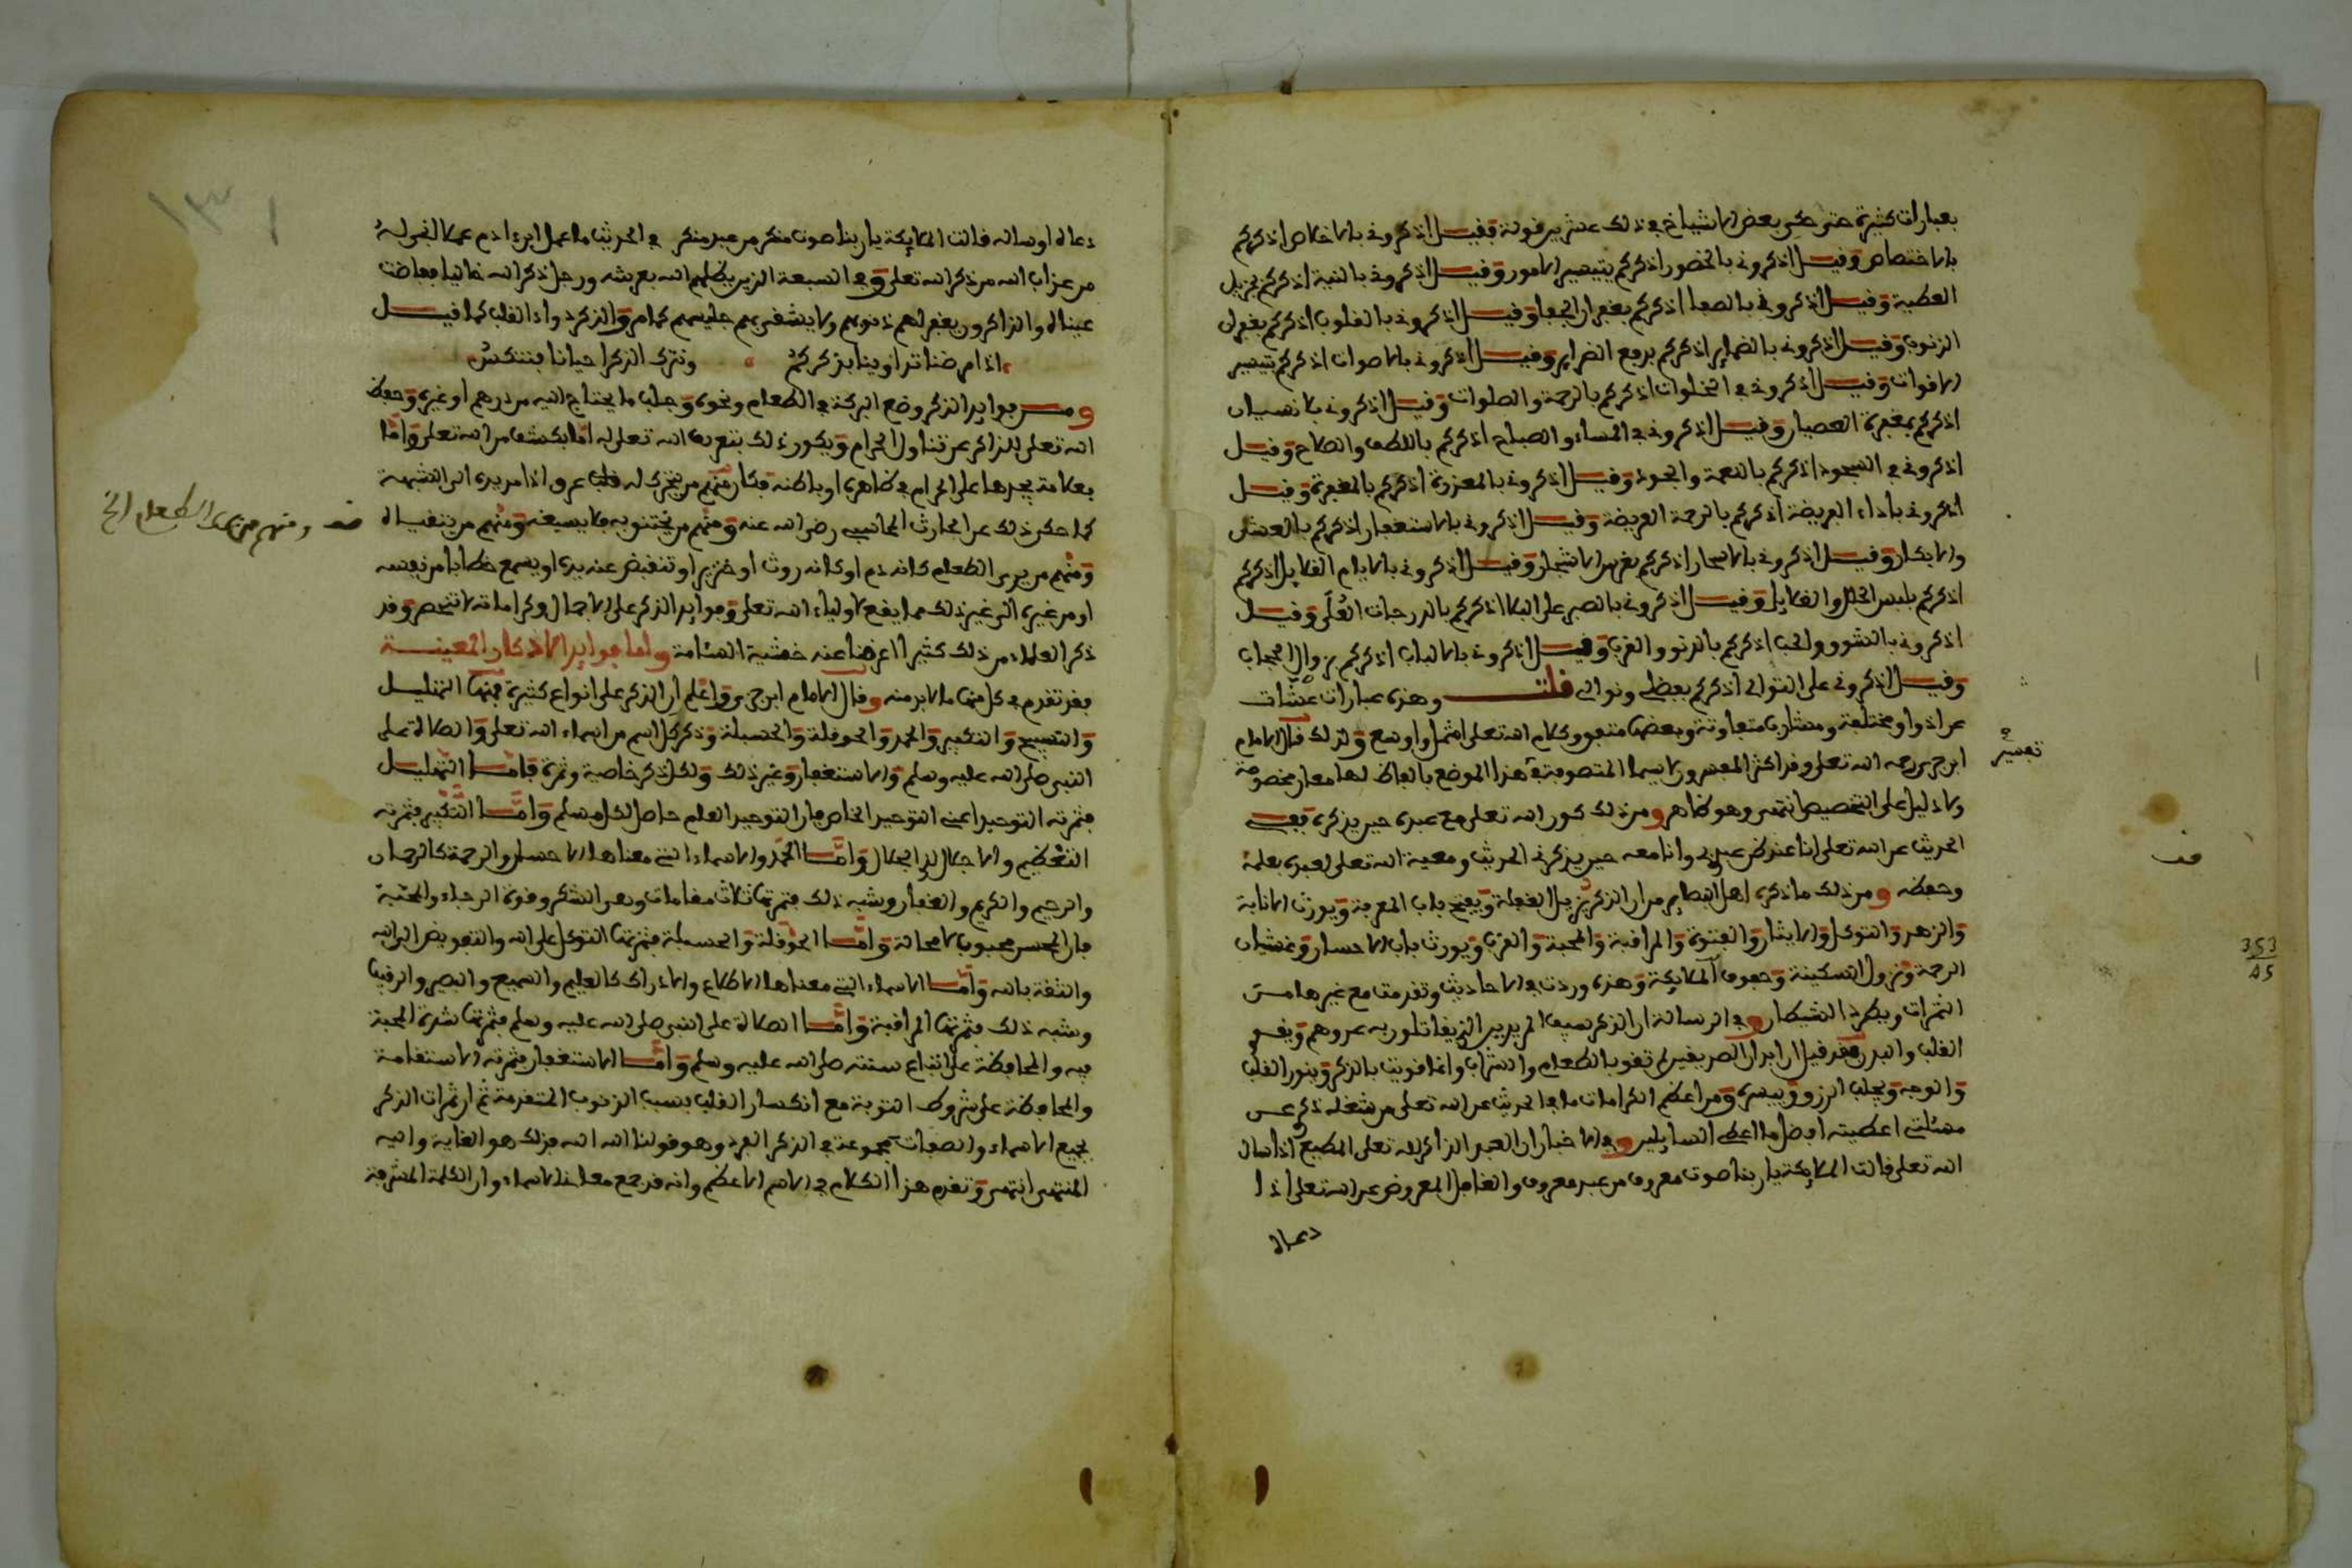 بعبارات كثيرة حتى حكى بعض الاشياخ في ذلك عشرين قولة فقيل اذكروني بالاخلاص اذكركم
بالاختصاص وقيل اذكروني بالحضور اذكركم بتيسير الامور وقيل اذكروني بالنية اذكركم بجزيل
العطية وقيل اذكروني بالصفا اذكركم بغفران الجفا وقيل اذكروني بالقلوب اذكركم بغفران
الذنوب وقيل اذكروني بالضماير اذكركم برفع الضراير وقيل اذكروني بالاصوات اذكركم بتيسير
الاقوات وقيل اذكروني في الخلوات اذكركم بالرحمة والصلوات وقيل اذكروني بلا نسيان
اذكركم بمغفرة العصيان وقيل اذكروني في المساء والصباح اذكركم باللطف والصلاح وقيل
اذكروني في السجود اذكركم بالنعمة والجود وقيل اذكروني بالمعذرة اذكركم بالمغفرة وقيل
اذكروني بأداء الفريضة اذكركم بالرحمة العريضة وقيل اذكروني بالاستغفار اذكركم بالعشي
والابكار وقيل اذكروني بالاسحار اذكركم بغرس الاشجار وقيل اذكروني بالايام القلايل اذكركم
اذكركم بلبس الحلل والغلايل وقيل اذكروني بالصبر على البلا اذكركم بالدرجات العُلَى وقيل
اذكروني بالشوق والحب اذكركم بالدنو والقرب وقيل اذكروني بالالباب اذكركم بزوال الحجاب
وقيل اذكروني على التوالي اذكركم بفضلي ونوالي قلت وهذه عبارات عشّات
عن اذواق مختلفة ومشارب متفاوتة وبعضها متفق وكلام الله تعلى اشمل واوسع ولذلك قال الامام
ابن جرير رحمه الله تعلى وقد اكثر المفسرون لاسيما المتصوفة في هذا الموضع بالفاظ لها معان مخصوصة
ولا دليل على التخصيص انتهى وهو ظاهر ومن ذلك كون الله تعلى مع عبده حين يذكره ففي
الحديث عن الله تعلى انا عند ظن عبدي وانا معه حين يذكرني الحديث ومعية الله تعلى لعبده بعلمه
وحفظه ومن ذلك ما ذكره اهل البصاير من ان الذكر يزيل الغفلة ويفتح باب المعرفة ويورث الانابة
والزهد والتوكل والايثار والفتوة والمراقبة والمحبة والقرب ويورث باب الاحسان وغشيان
الرحمة ونزول السكينة وحفوف الملايكة وهذه وردت في الاحاديث وتقدمت مع غيرها من
الثمرات ويطرد الشيطان وفي الرسالة ان الذكر سيف المريدين الذي يقاتلون به عدوهم ويقوي
القلب والبدن فقد قيل ان ابدان الصديقين لم تقو بالطعام والشراب وانما قويت بالذكر وينور القلب
والوجه ويجلب الرزق وييسره ومن اعظم الكرامات ما في الحديث عن الله تعلى من شغله ذكري عن
مسئلتي اعطيته افضل ما اعطي السايلين وفي الاخبار ان العبد الذاكر لله تعلى المطيع اذا سال
الله تعلى قالت الملايكة يا ربنا صوت معروف من عبد معروف والغافل المعرض عن الله تعلى اذا
دعاه
تفسير
قف
353
45
دعاه او ساله قالت الملايكة يا ربنا صوت منكر من عبد منكر وفي الحديث ما عمل ابن ادم عملا انجى له
من عذاب الله من ذكر الله تعلى وفي السبعة الذين يظلهم الله بعرشه ورجل ذكر الله خاليا ففاضت
عيناه والذاكرون يغفر لهم ذنوبهم ولا يشقى بهم جليسهم كما مر والذكر دواء القلب كما قيل
اذا مرضنا تداوينا بذكركم ونترك الذكر احيانا فننتكس
ومن فوايد الذكر وضع البركة في الطعام ونحوه وجلب ما يحتاج اليه من درهم او غيره وحفظ
الله تعلى للذاكر عن تناول الحرام ويكون ذلك بتعريف الله تعلى له اما بكشف من الله تعلى واما
بعلامة يجدها على الحرام في ظاهره او باطنه فكان منهم من يتحرك له قلب عروق اذا مد يده الى الشبهة
كما حكي ذلك عن الحارث المحاسبي رضي الله عنه ومنهم من يختنق به فلا يسيغه ومنهم من يتقياه
ومنهم من يرى الطعام كانه دم او كانه روث او خنزير او تنقبض عنه يده او يسمع خطابا من نفسه
او من غيره الى غير ذلك مما يقع لاولياء الله تعلى وفوايد الذكر على الاجمال وكراماته لا تنحصر وقد
ذكر العلماء من ذلك كثيرا اعرضنا عنه خشية السئامة واما فوايد الاذكار المعينة
فقد تقدم في كل منها ما لا بد منه وقال الامام ابن جزي واعلم ان الذكر على انواع كثيرة فمنها التهليل
والتسبيح والتكبير والحمد والحوقلة والحسبلة وذكر كل اسم من اسماء الله تعلى والصلاة على
النبي صلى الله عليه وسلم والاستغفار وغير ذلك ولكل ذكر خاصية وثمرة فاما التهليل
فثمرته التوحيد اعني التوحيد الخاص فان التوحيد العام حاصل لكل مسلم واما التكبير فثمرته
التعظيم والاجلال لذي الجلال واما الحمد والاسماء التي معناها الاحسان والرحمة كالرحمان
والرحيم والكريم والغفار وشبه ذلك فثمرتها ثلاث مقامات وهي الشكر وقوة الرجاء والمحبة
فان المحسن محبوب لا محالة واما الحوقلة والحسبلة فثمرتها التوكل على الله والتفويض الى الله
والثقة بالله واما الاسماء التي معناها الاطلاع والادراك كالعليم والسميع والبصير والرقيب
وشبه ذلك فثمرتها المراقبة واما الصلاة على النبي صلى الله عليه وسلم فثمرتها شدة المحبة
فيه والمحافظة على اتباع سنته صلى الله عليه وسلم واما الاستغفار فثمرته الاستقامة
والمحافظة على شروط التوبة مع انكسار القلب بسبب الذنوب المتقدمة ثم ان ثمرات الذكر
بجميع الاسماء والصفات مجموعة في الذكر الفرد وهو قولنا الله الله فذلك هو الغاية واليه
المنتهى انتهى وتقدم هذا الكلام في الاسم الاعظم وانه قد جمع معاني الاسماء وان الكلمة المشرفة
ومنهم من يرى الطعام الخ
١٣١